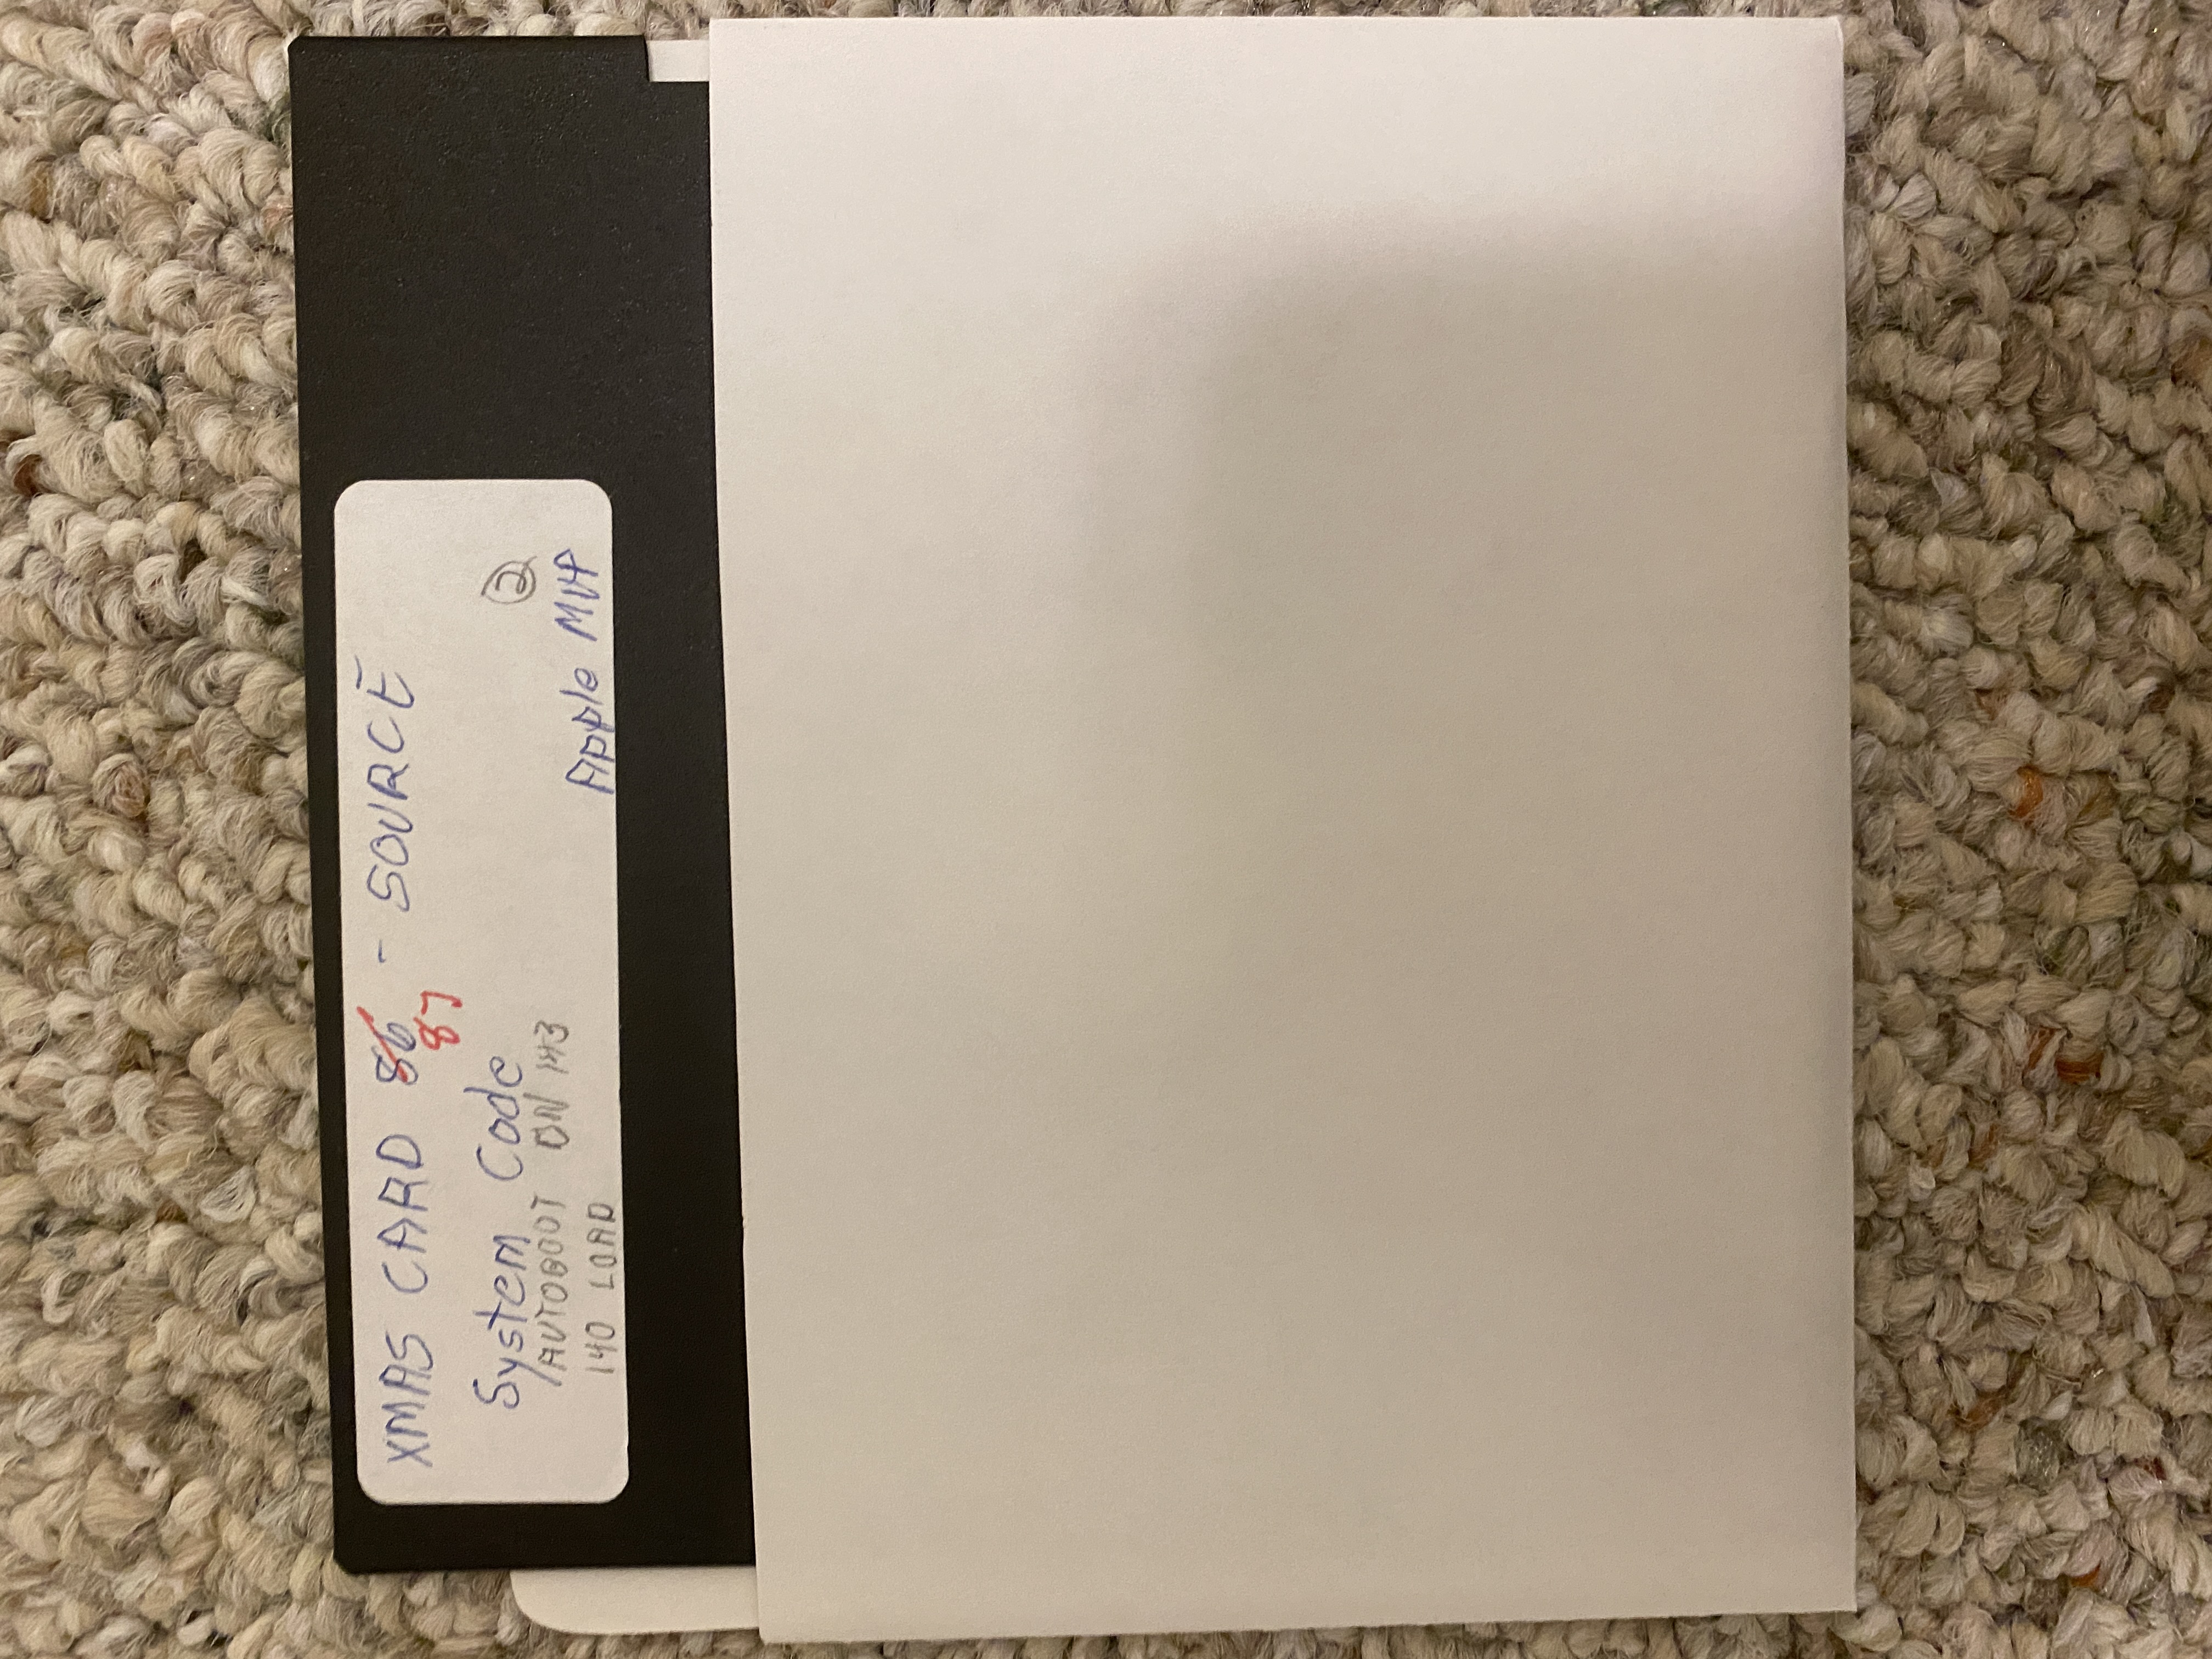 XMAS CARD 86 - SOURCE
87
System Code
2
AUTOBOOT ON 143
140 LOAD
Apple MVP